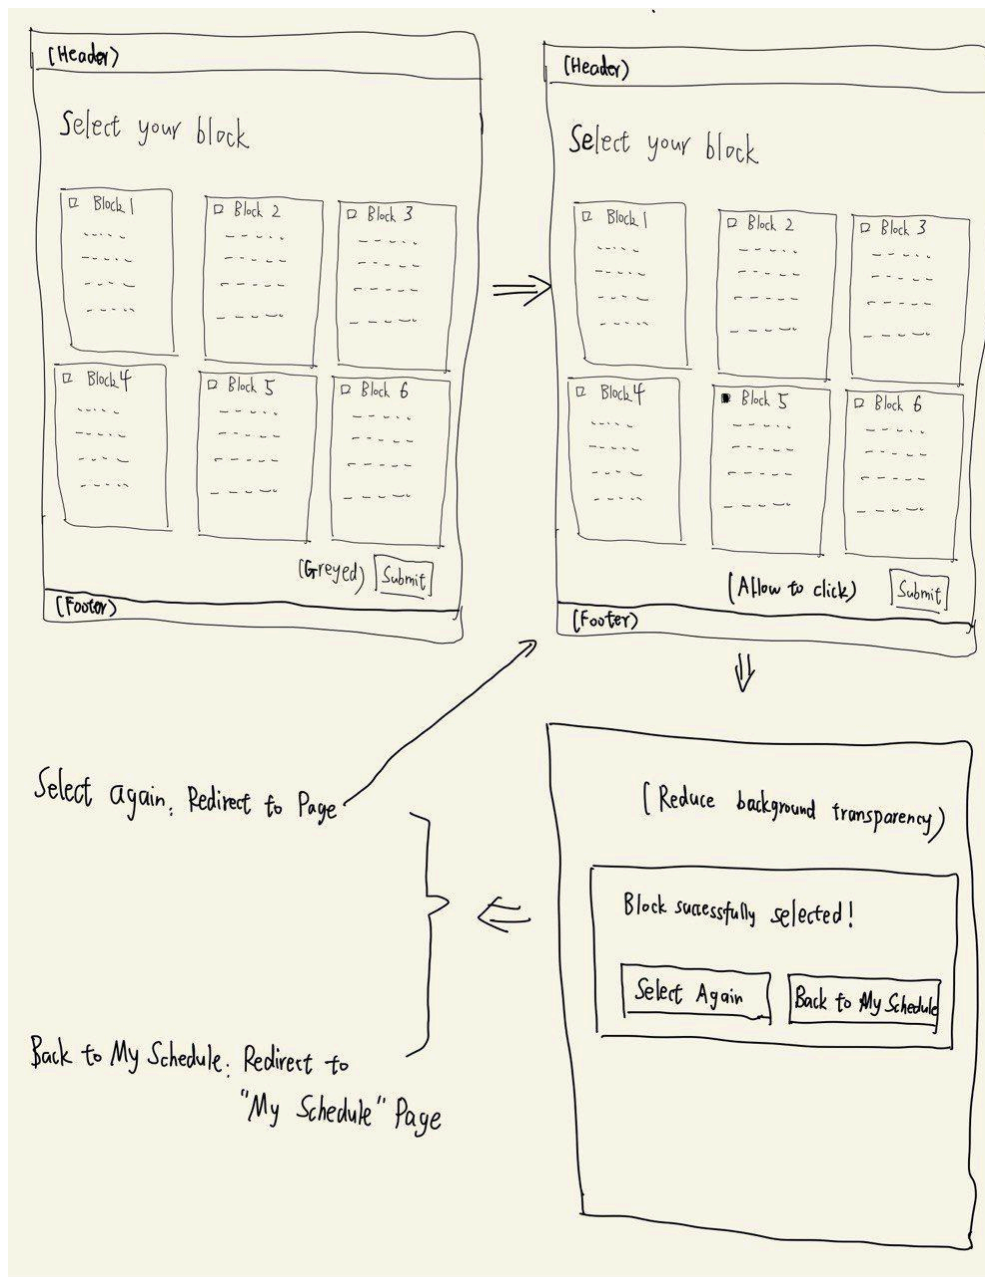 (Header)
Select your block
Block 1
Block 2
Block 3
Block 4
Block 5
Block 6
(Greyed) Submit
(Footer)
(Header)
Select your block
Block 1
Block 2
Block 3
Block 4
Block 5
Block 6
(Allow to click) Submit
(Footer)
(Reduce background transparency)
Block successfully selected!
Select Again
Back to My Schedule
Select again: Redirect to Page
Back to My Schedule: Redirect to
"My Schedule" Page